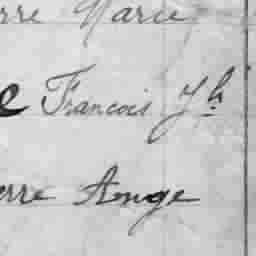 rre Marie
e Francois Jh
erre Ange